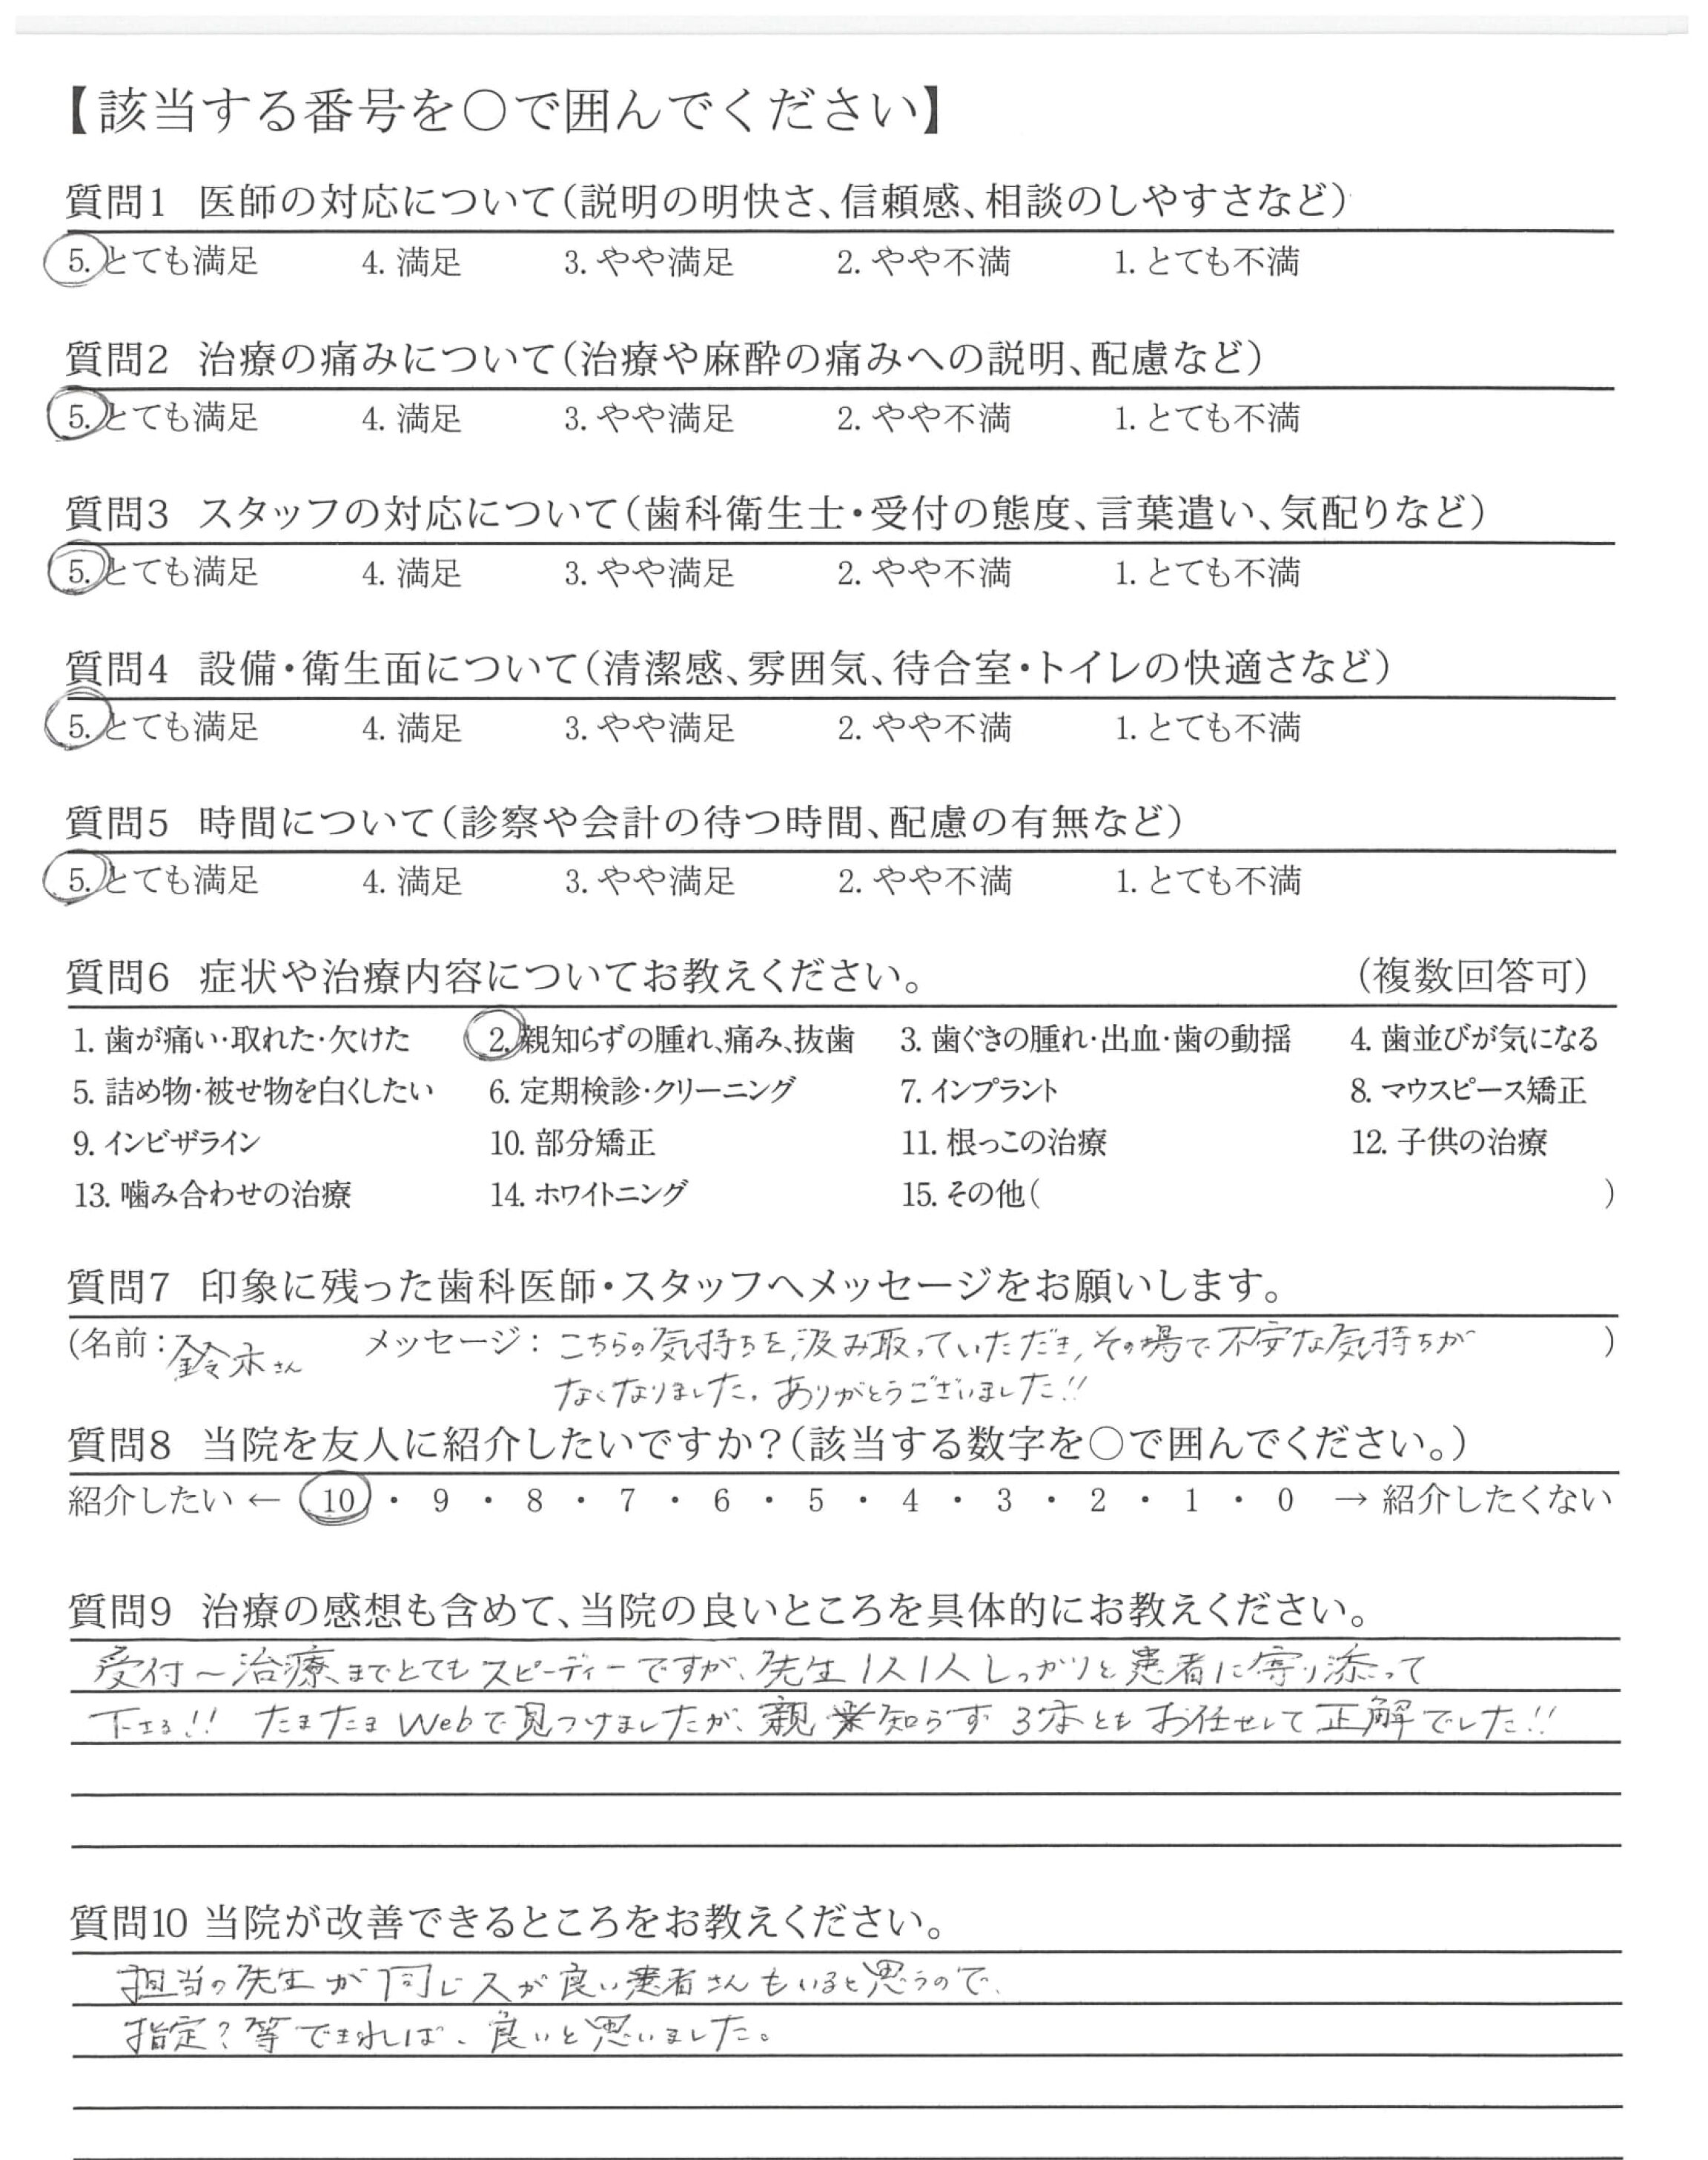 【該当する番号を○で囲んでください】
質問1 医師の対応について(説明の明快さ、信頼感、相談のしやすさなど)
5. とても満足 4. 満足 3. やや満足 2. やや不満 1. とても不満
質問2 治療の痛みについて(治療や麻酔の痛みへの説明、配慮など)
5. とても満足 4. 満足 3. やや満足 2. やや不満 1. とても不満
質問3 スタッフの対応について(歯科衛生士・受付の態度、言葉遣い、気配りなど)
5. とても満足 4. 満足 3. やや満足 2. やや不満 1. とても不満
質問4 設備・衛生面について(清潔感、雰囲気、待合室・トイレの快適さなど)
5. とても満足 4. 満足 3. やや満足 2. やや不満 1. とても不満
質問5 時間について(診察や会計の待つ時間、配慮の有無など)
5. とても満足 4. 満足 3. やや満足 2. やや不満 1. とても不満
質問6 症状や治療内容についてお教えください。 (複数回答可)
1. 歯が痛い・取れた・欠けた 2. 親知らずの腫れ、痛み、抜歯 3. 歯ぐきの腫れ・出血・歯の動揺 4. 歯並びが気になる
5. 詰め物・被せ物を白くしたい 6. 定期検診・クリーニング 7. インプラント 8. マウスピース矯正
9. インビザライン 10. 部分矯正 11. 根っこの治療 12. 子供の治療
13. 噛み合わせの治療 14. ホワイトニング 15. その他( )
質問7 印象に残った歯科医師・スタッフへメッセージをお願いします。
(名前：鈴木さん メッセージ：こちらの気持ちを汲み取っていただき、その場で不安な気持ちが )
なくなりました。ありがとうございました!!
質問8 当院を友人に紹介したいですか？(該当する数字を○で囲んでください。)
紹介したい ← 10 ・ 9 ・ 8 ・ 7 ・ 6 ・ 5 ・ 4 ・ 3 ・ 2 ・ 1 ・ 0 → 紹介したくない
質問9 治療の感想も含めて、当院の良いところを具体的にお教えください。
受付～治療までとてもスピーディーですが、先生1人1人しっかりと患者に寄り添って
下さる!! たまたまWebで見つけましたが、親知らず3本ともお任せして正解でした!!
質問10 当院が改善できるところをお教えください。
担当の先生が同じ人が良い患者さんもいると思うので、
指定？等できれば、良いと思いました。